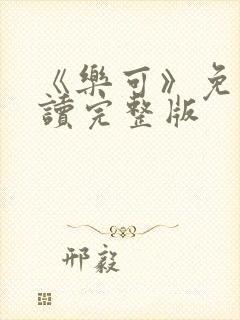 《樂可》免
讀完整版
邢毅